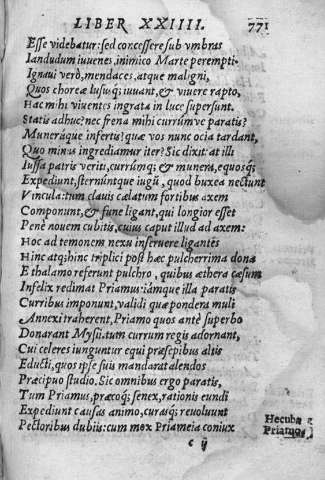 LIBER XXIIII. 771
Esse videbatur: sed concessere sub vmbras
Iandudum iuuenes, inimico Marte perempti.
Ignaui verò, mendaces, atque maligni,
Quos choreæ lususq; iuuant, & viuere rapto,
Hac mihi viuentes ingrata in luce supersunt.
Statis adhuc? nec frena mihi currúmve paratis?
Muneráque infertis? quæ vos nunc ocia tardant,
Quo minus ingrediamur iter? Sic dixit: at illi
Iussa patris veriti, currúmq; & munera, equosq;
Expediunt, sternúntque iugũ, quod buxea nectunt
Vincula: tum clauis cælatum fortibus axem
Componunt, & fune ligant, qui longior esset
Penè nouem cubitis, cuius caput illud ad axem:
Hoc ad temonem nexu inseruere ligantes
Hinc atq; hinc triplici post hæc pulcherrima dona
E thalamo referunt pulchro, quibus æthera cæsum
Infelix redimat Priamus: iámque illa paratis
Curribus imponunt, validi quæ pondera muli
Annexi traherent, Priamo quos antè superbo
Donarant Mysii. tum currum regis adornant,
Cui celeres iunguntur equi præsepibus altis
Educti, quos ipse suis mandarat alendos
Præcipuo studio. Sic omnibus ergo paratis,
Tum Priamus, præcoq; senex, rationis eundi
Expediunt causas animo, curasq; reuoluunt
Pectoribus dubiis: cum mox Priameia coniux
Hecuba
Priamo
c ij